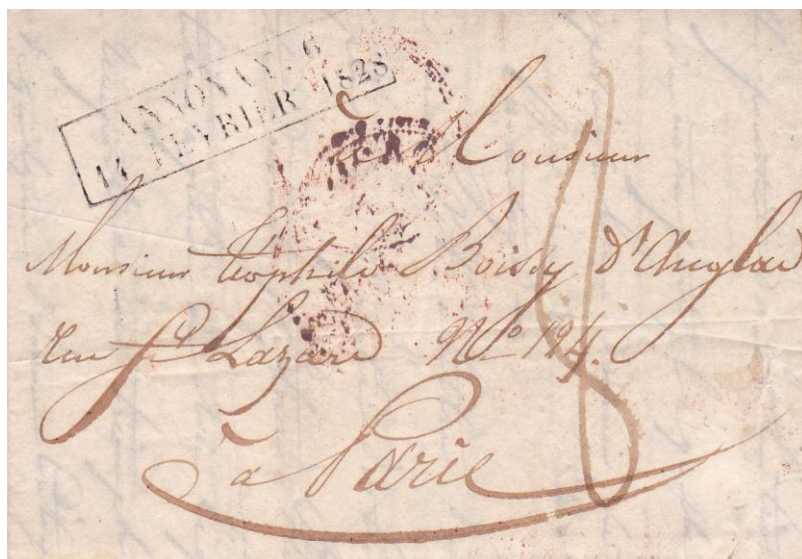 ANNONAY. 6
14 FEVRIER 1828
à Monsieur
Monsieur Théophile Boissy D'Anglas
Rue St Lazare No 124.
à Paris